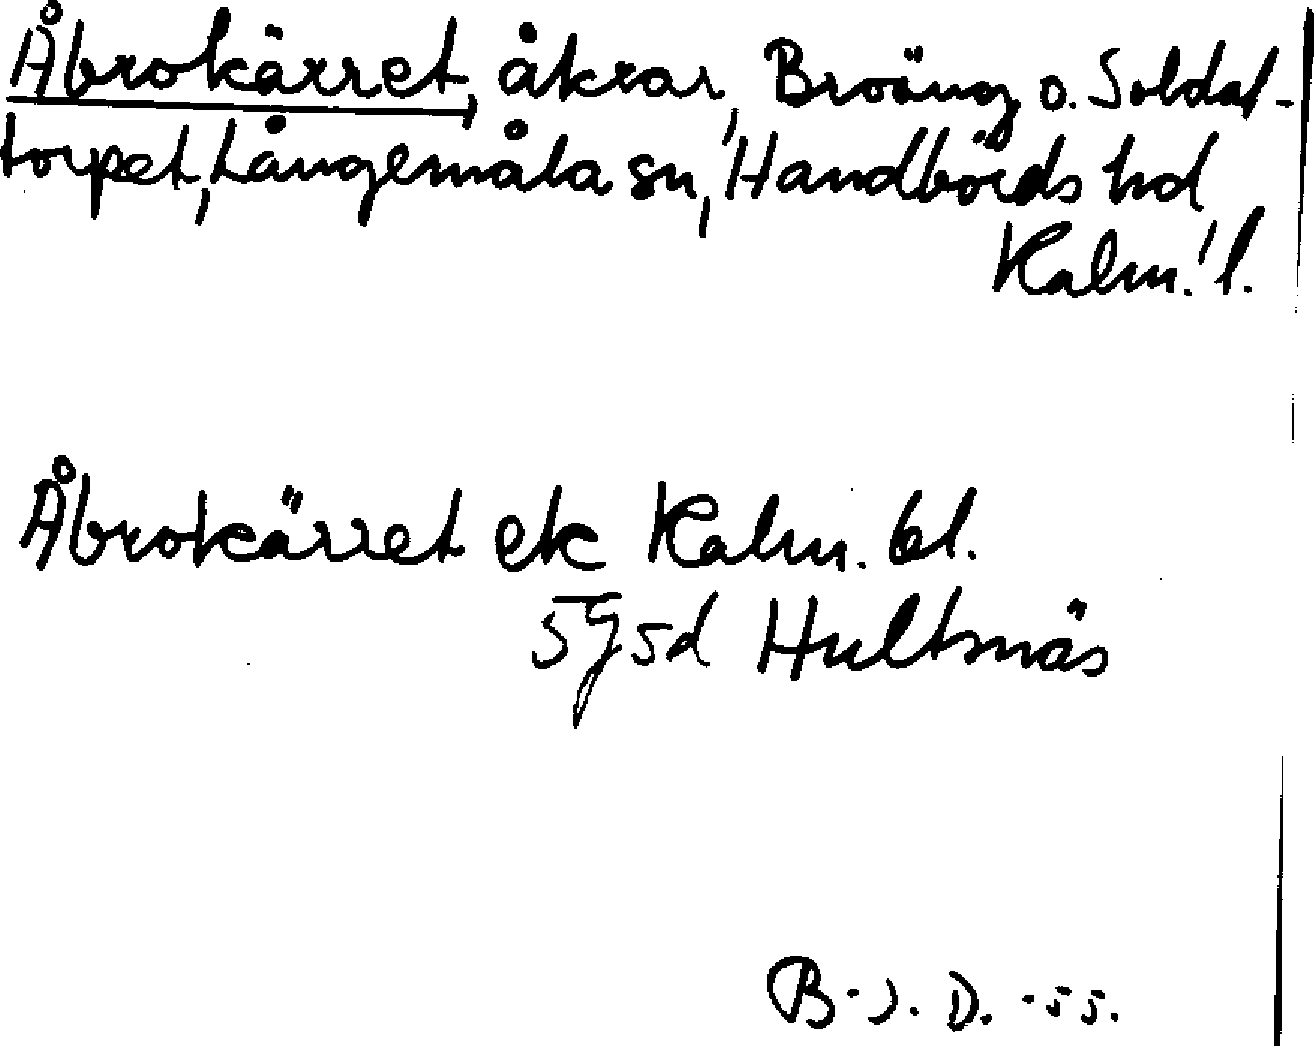 Åbrokärret, åkrar, Broäng o. Soldat-
torpet, Långemåla sn, Handbörds hd
Kalm. l.
Åbrokärret ek Kalm. bl.
5g5d Hultsnäs
B-J. D. -55.